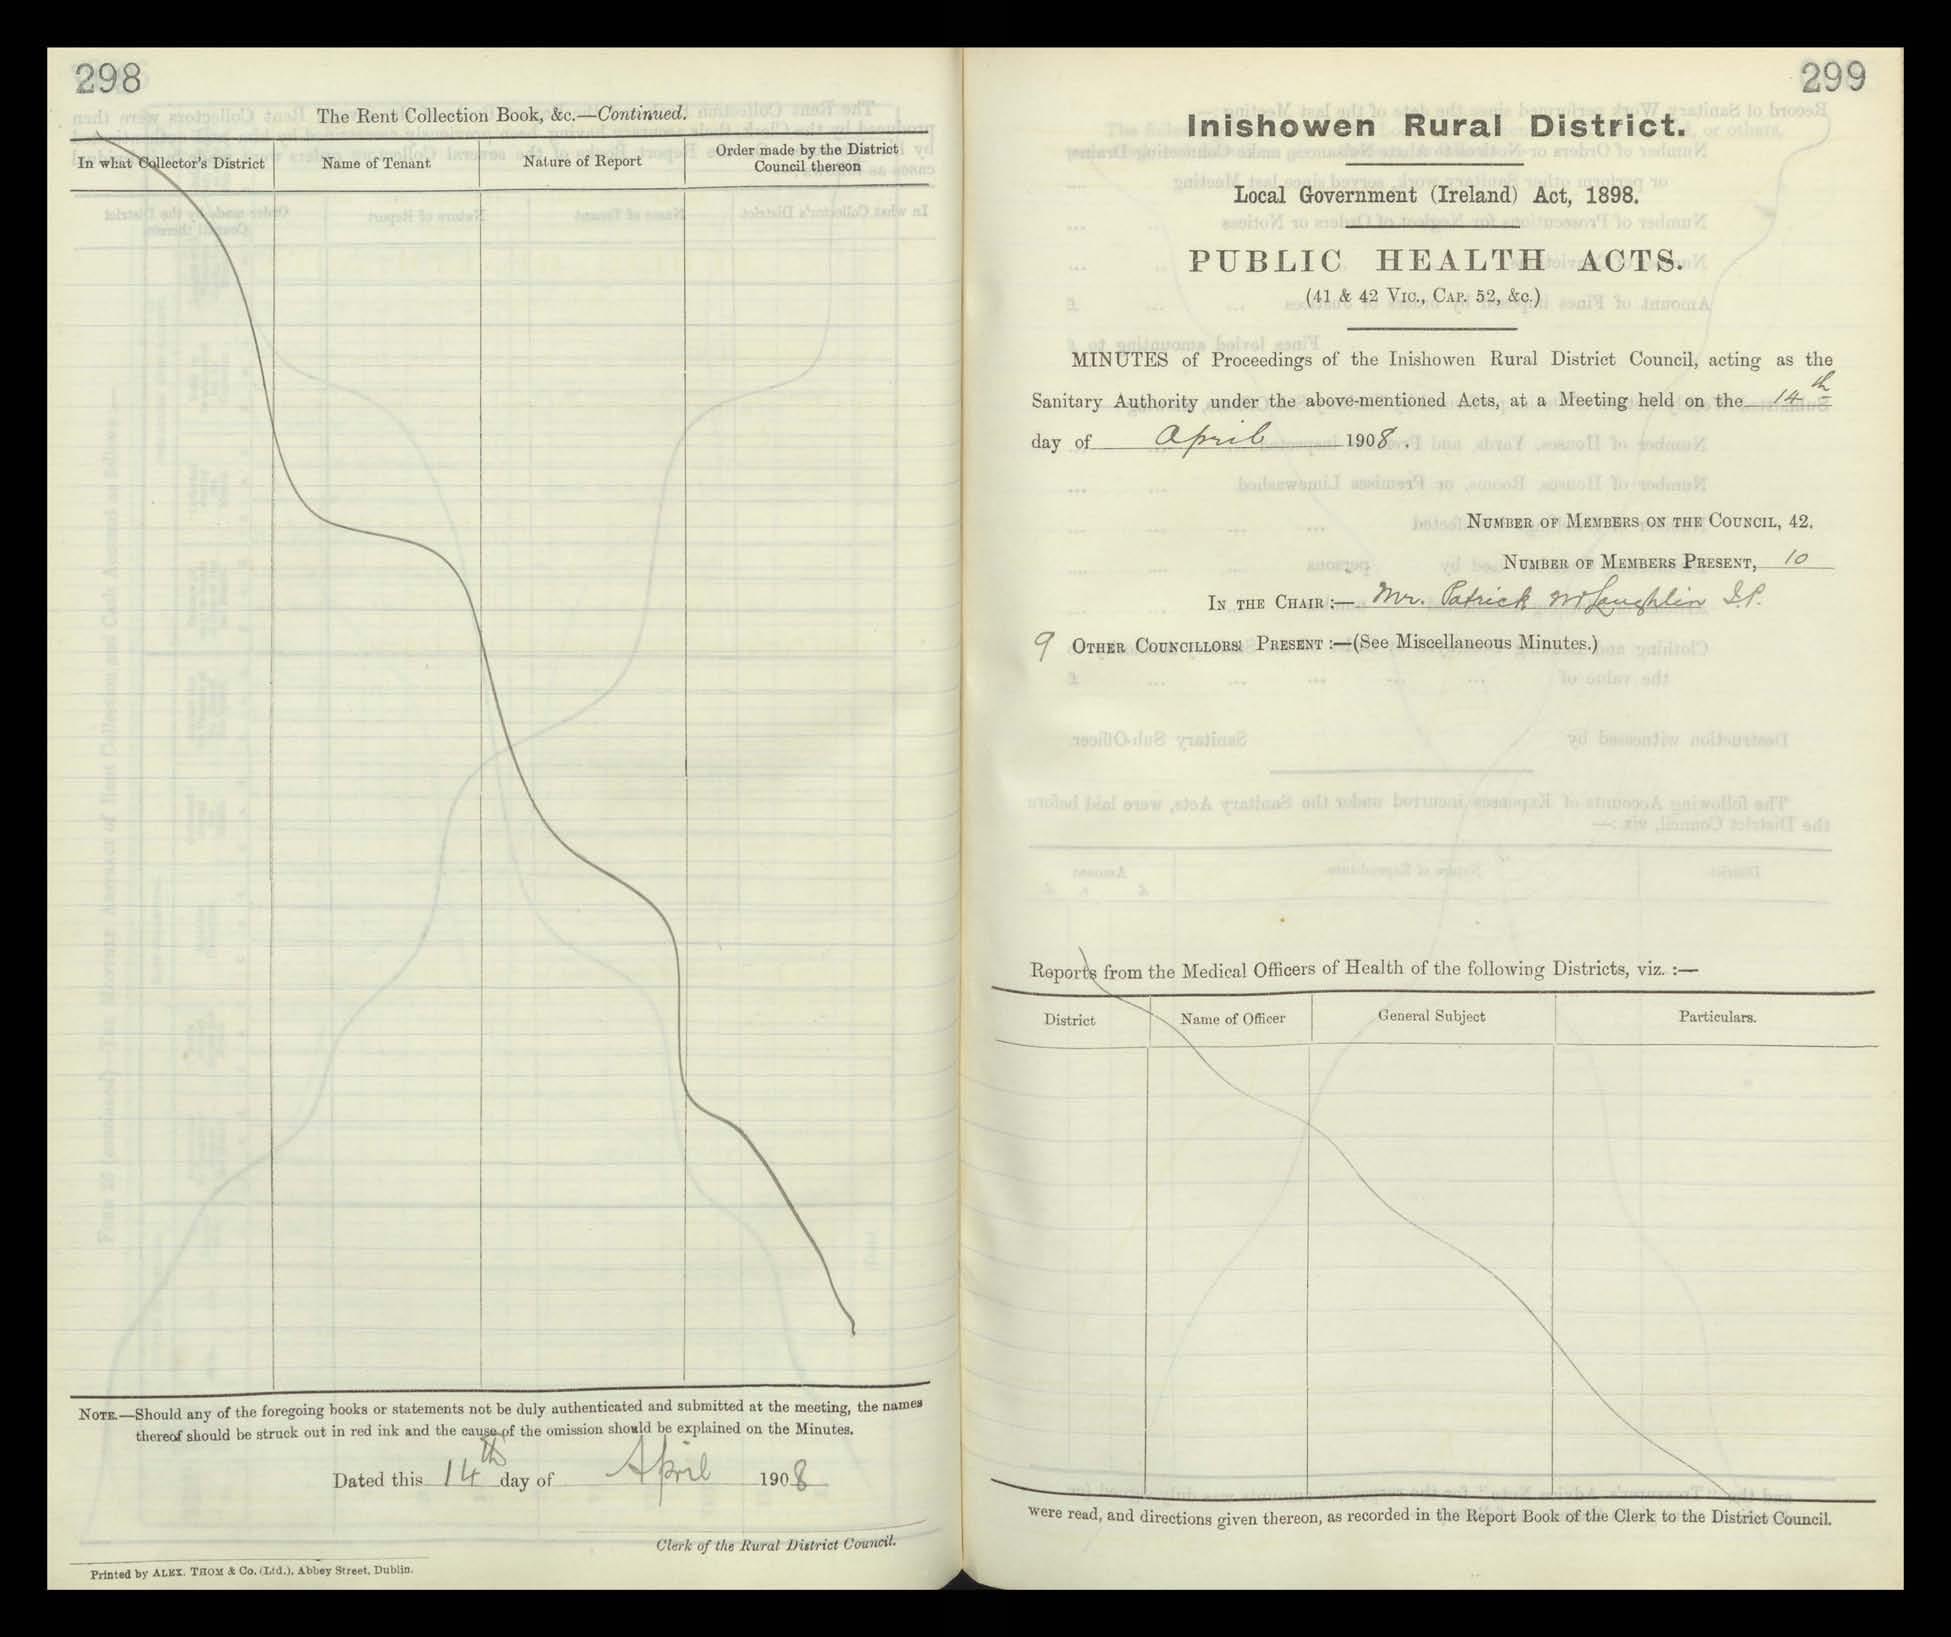 298
The Rent Collection Book, &c.—Continued.
In what Collector's District
Name of Tenant
Nature of Report
Order made by the District
Council thereon
NOTE.—Should any of the foregoing books or statements not be duly authenticated and submitted at the meeting, the names
thereof should be struck out in red ink and the cause of the omission should be explained on the Minutes.
Dated this 14th day of April 1908
Clerk of the Rural District Council.
Printed by ALEX. THOM & Co. (Ltd.), Abbey Street, Dublin.
299
Inishowen Rural District.
Local Government (Ireland) Act, 1898.
PUBLIC HEALTH ACTS.
(41 & 42 VIC., CAP. 52, &c.)
MINUTES of Proceedings of the Inishowen Rural District Council, acting as the
Sanitary Authority under the above-mentioned Acts, at a Meeting held on the 14th
day of April 1908.
NUMBER OF MEMBERS ON THE COUNCIL, 42.
NUMBER OF MEMBERS PRESENT, 10
IN THE CHAIR :— Mr. Patrick McLaughlin J.P.
9 OTHER COUNCILLORS PRESENT :—(See Miscellaneous Minutes.)
Reports from the Medical Officers of Health of the following Districts, viz. :—
District
Name of Officer
General Subject
Particulars.
were read, and directions given thereon, as recorded in the Report Book of the Clerk to the District Council.